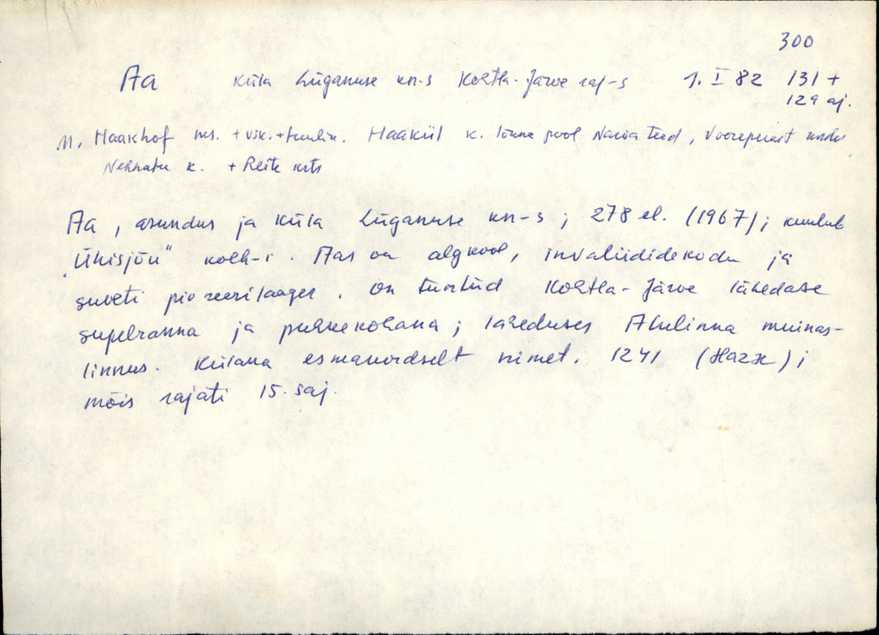 300
Aa küla Lüganuse kn-s Kohtla-Järve raj-s 1. I 82 131 +
129 aj.
M. Haakhof ms. + vsk. + Haakül k. lõuna pool Narva teed,
Nehhatu k. + Reite krts
Aa, asundus ja küla Lüganuse kn-s; 278 el. (1967); kuulub
"Ühisjõu" kolh-i. Aas on algkool, invaliidide kodu ja
suveti pioneerilaager. On tuntud Kohtla-Järve lähedase
supelranna ja puhkekohana; läheduses Alulinna muinas-
linnus. Külana esmakordselt nimet. 1241 (Hazæ);
mõis rajati 15. saj.